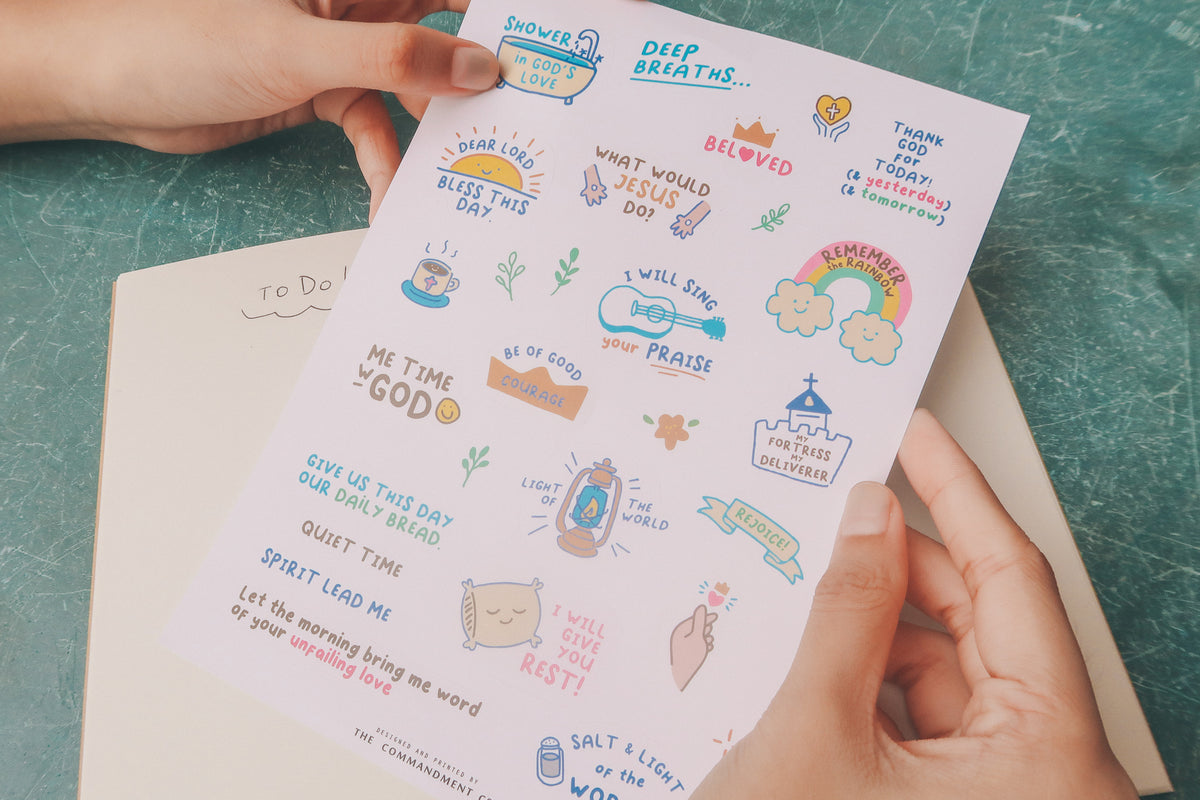 SHOWER
in GOD'S
LOVE
DEEP
BREATHS...
BELOVED
THANK
GOD
FOR
TODAY!
(& yesterday)
(& tomorrow)
DEAR LORD
BLESS THIS
DAY.
WHAT WOULD
JESUS
DO?
REMEMBER
the RAINBOW
TO DO
I WILL SING
your PRAISE
ME TIME
W GOD
BE OF GOOD
COURAGE
MY
FORTRESS
MY
DELIVERER
GIVE US THIS DAY
OUR DAILY BREAD.
LIGHT OF THE WORLD
REJOICE!
QUIET TIME
SPIRIT LEAD ME
Let the morning bring me word
of your unfailing love
I WILL
GIVE
YOU
REST!
DESIGNED AND PRINTED BY
THE COMMANDMENT
SALT & LIGHT
of the